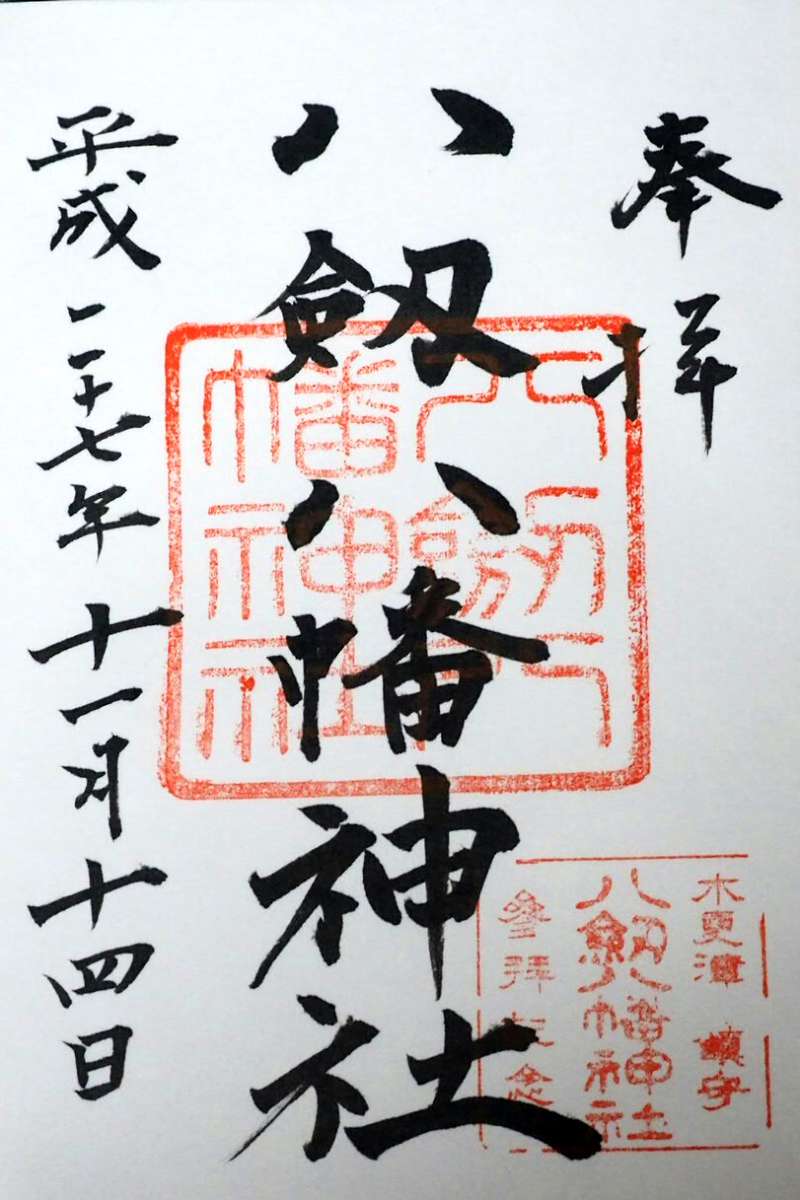 奉拝
八剱八幡神社
平成二十七年十一月十四日
八剱八幡神社
木更津 鎮守
八剱八幡神社
参拝記念